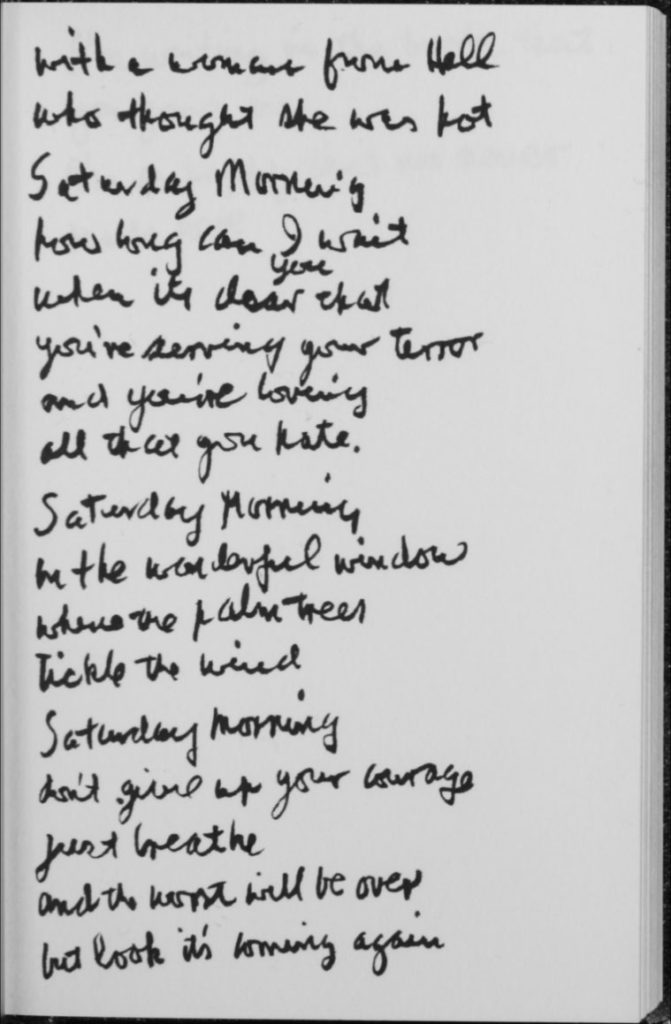 with a woman from Hell
who thought she was hot
Saturday Morning
how long can I wait
you
when it's clear that
you're serving your terror
and you're loving
all that you hate.
Saturday Morning
in the wonderful window
where the palm trees
tickle the wind
Saturday Morning
don't give up your courage
just breathe
and the worst will be over
but look it's coming again